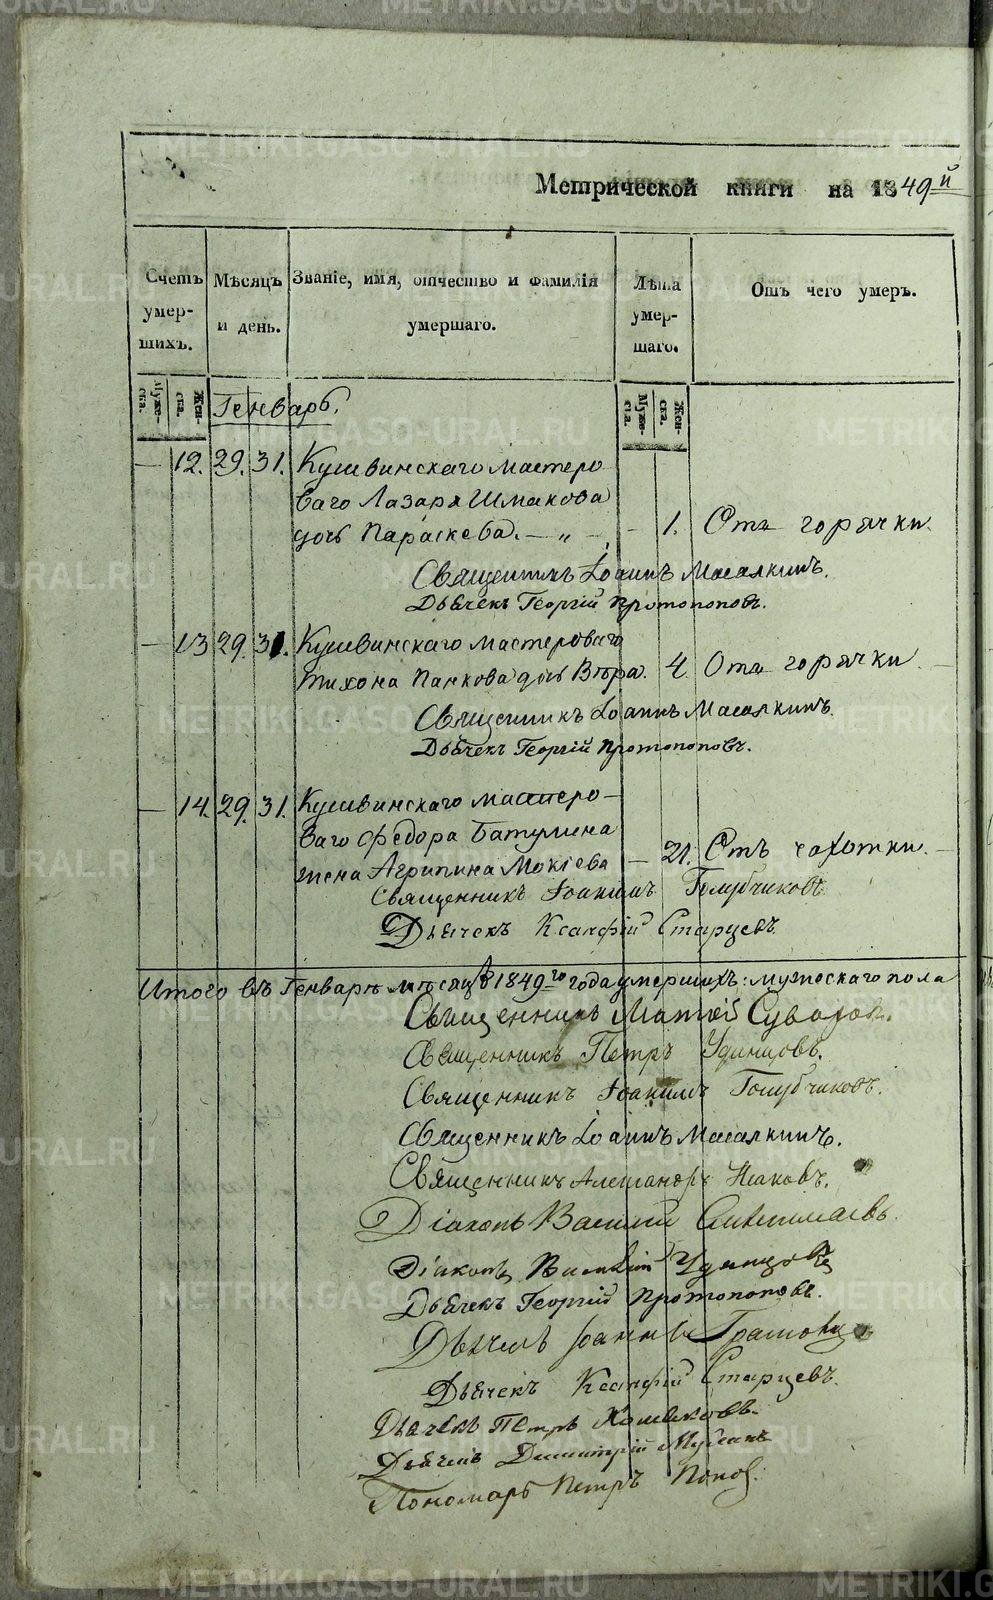 METRIKI.GASO-URAL.RU
Метрической книги на 1849й
Счетъ умер-шихъ. Мѣсяцъ и день. Званіе, имя, отчество и фамилія умершаго. Лѣта умер-шаго. Отъ чего умеръ.
Муже-ска. Жен-ска. Генварь. Муже-ска. Жен-ска.
— 12. 29. 31. Кушвинскаго мастеро
ваго Лазаря Шмакова
дочь Параскева. — „ — - 1. Отъ горячки.
Священникъ Іоаннъ Масалкинъ.
Дьячекъ Георгій Протопоповъ.
— 13 29. 31. Кушвинскаго мастероваго
Тихона Панкова дочь Вѣра. 4. Отъ горячки. —
Священникъ Іоаннъ Масалкинъ.
Дьячекъ Георгій Протопоповъ.
— 14. 29. 31. Кушвинскаго мастеро —
ваго Федора Батумина
жена Агрипина Мокіева — 21. Отъ чахотки. —
Священникъ Іоакимъ Голубчиковъ
Дьячекъ Ксанфій Старцевъ.
Итого въ Генварѣ мѣсяцѣ 1849го года умершихъ: мужескаго пола
Священникъ Матѳій Суворов.
Священникъ Петръ Удинцовъ.
Священникъ Іоакимъ Голубчиковъ.
Священникъ Іоаннъ Масалкинъ.
Священникъ Александръ
Діаконъ Василій
Діаконъ Василій Удинцовъ
Дьячекъ Георгій Протопоповъ.
Дьячекъ Іоаннъ
Дьячекъ Ксанфій Старцевъ.
Дьячекъ Петръ
Дьячекъ Димитрій
Пономарь Петръ Попов.